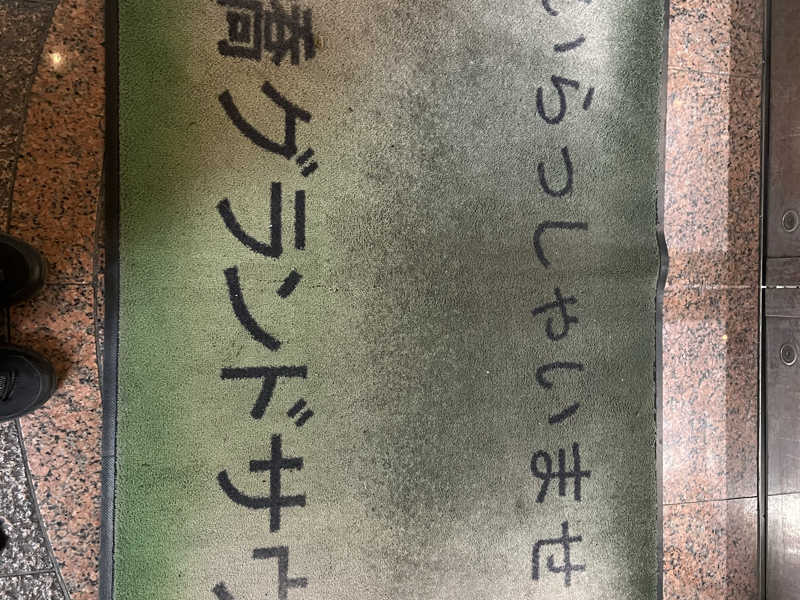 いらっしゃいませ
橋グランドサウ